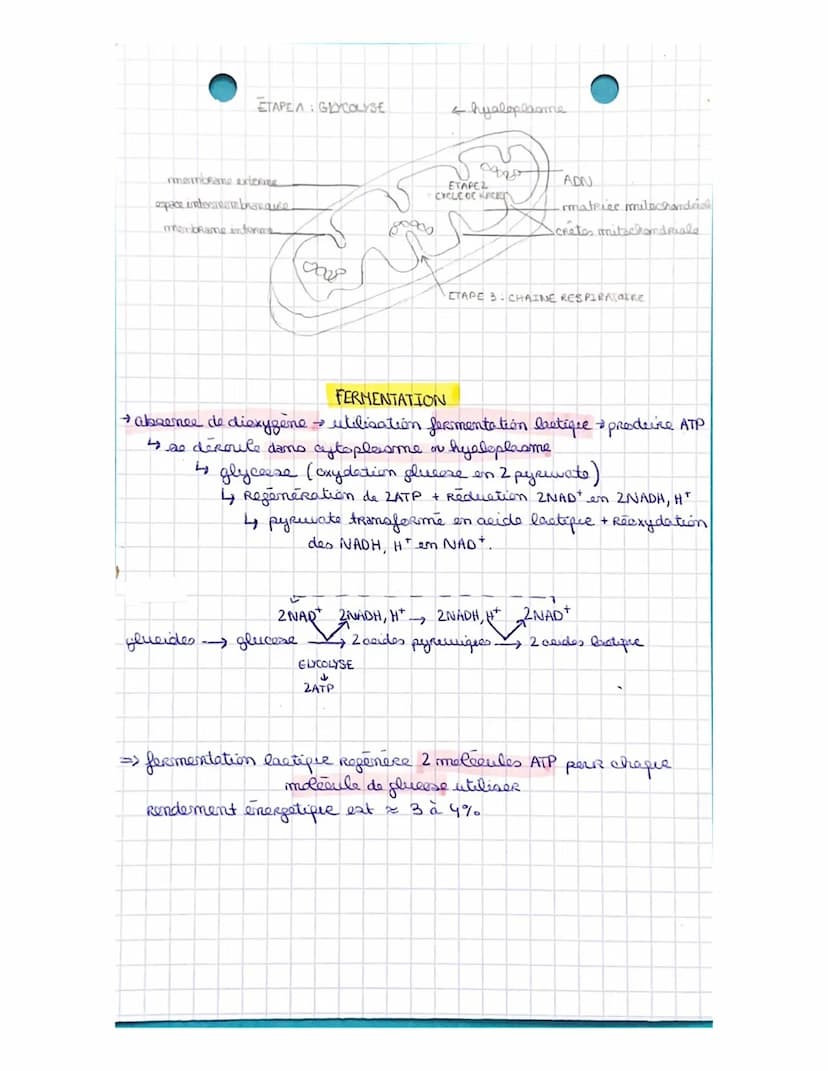 ETAPE 1 : GLYCOLYSE
← hyaloplasme
membrane externe
espace intermembranaire
membrane interne
ETAPE 2
CYCLE DE KREBS
ADN
matrice mitochondriale
crêtes mitochondriale
ETAPE 3 : CHAINE RESPIRATOIRE
FERMENTATION
→ absence de dioxygène → utilisation fermentation lactique → produire ATP
↳ se déroule dans cytoplasme ou hyaloplasme
↳ glycolyse (oxydation glucose en 2 pyruvate)
↳ Régénération de 2ATP + Réduction 2NAD⁺ en 2NADH, H⁺
↳ pyruvate transformé en acide lactique + Réoxydation
des NADH, H⁺ en NAD⁺.
2NAD⁺ 2NADH, H⁺ → 2NADH, H⁺ 2NAD⁺
glucides → glucose → 2 acides pyruviques → 2 acides lactique
GLYCOLYSE
↓
2ATP
⇒ fermentation lactique Régénère 2 molécules ATP pour chaque
molécule de glucose utiliser
Rendement énergétique est ≈ 3 à 4%